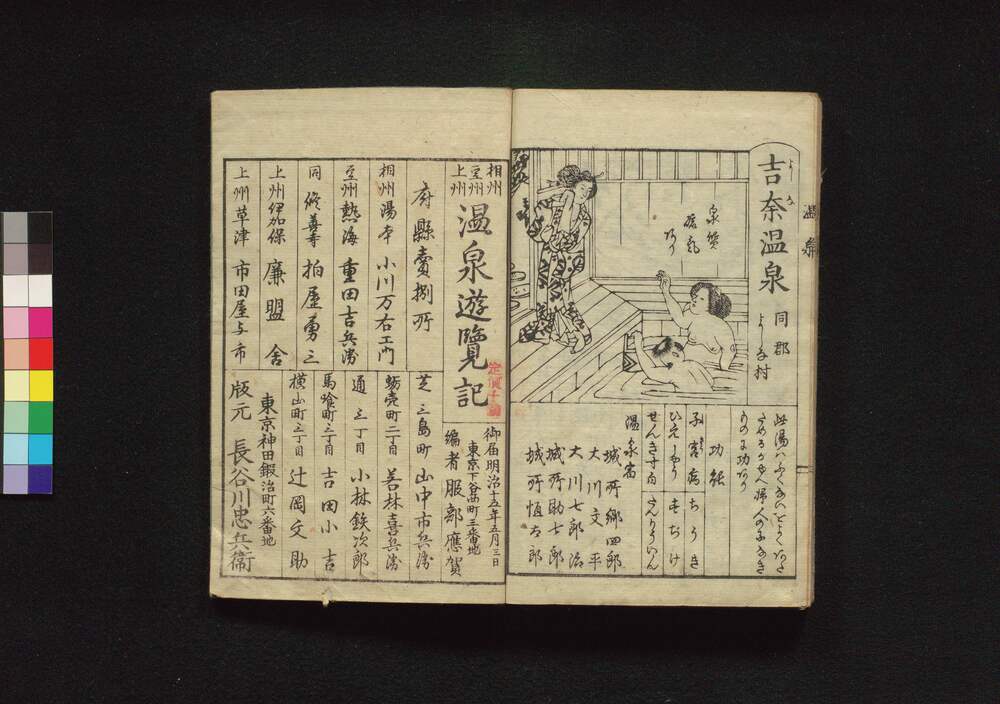 温泉
吉奈温泉
よしな
同郡
よしな村
泉質
硫気
あり
此湯ハ
功能
子宮病
ちうき
ひえしやう
すぢけ
せんき寸白
温泉宿
城所郷四郎
大川文平
大川七郎治
城所助七郎
城所恒太郎
相州
豆州
上州
温泉遊覧記
定價十銭
御届明治十五年五月三日
東京下谷西町三番地
編者 服部應賀
府縣賣捌所
相州湯本 小川万右エ門
豆州熱海 重田吉兵衛
同修善寺 柏屋勇三
上州伊加保 廉盟舎
上州草津 市田屋与市
芝三島町 山中市兵衛
蛎売町二丁目 若林喜兵衛
通三丁目 小林鉄次郎
馬喰町三丁目 吉田小吉
横山町三丁目 辻岡文助
東京神田鍛冶町六番地
版元 長谷川忠兵衛